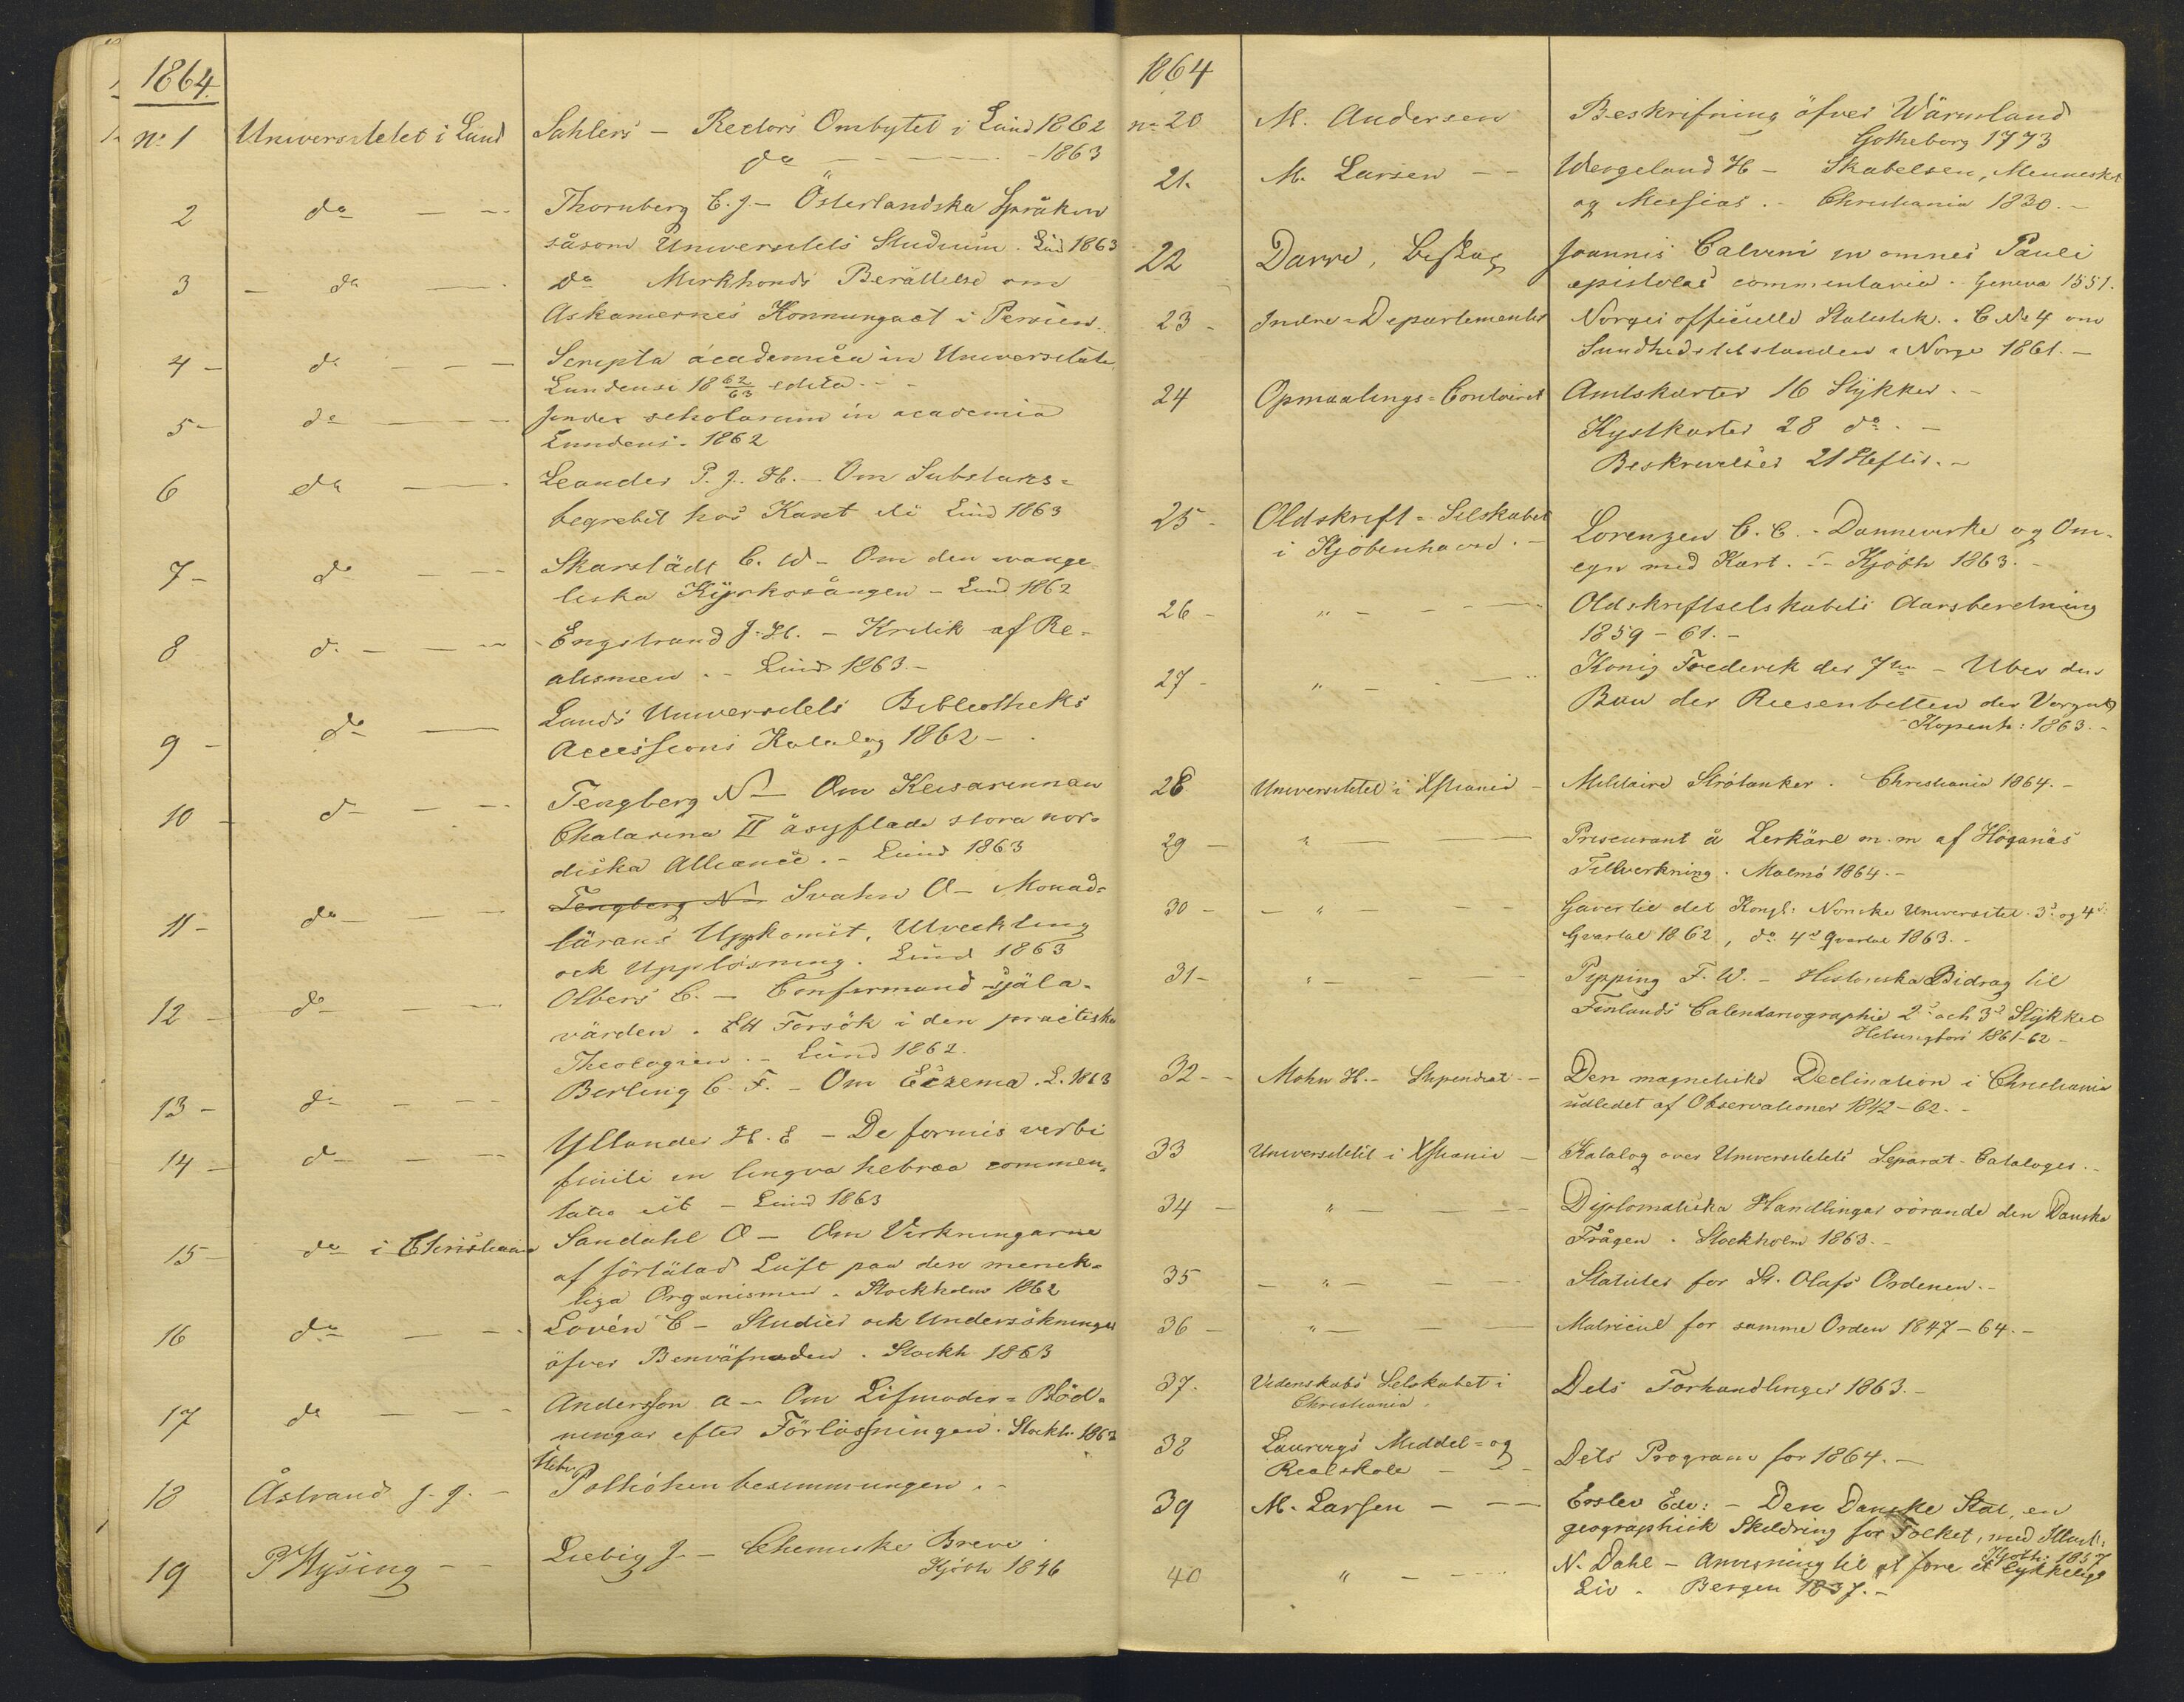 1864.
No 1 Universitetet i Lund Sahlers – Rectors Ombytet i Lund 1862
do – – – – 1863
2 do – – Thornberg C. J. – Österlandska Språken
såsom Universitets Studium. Lund 1863
3 – do – do Mirkhonds Berättelse om
Askaniernes Konnungaat i Persien.
4 – do – – – Scripta academica in Universitate
Lundensi 18 62/63 edita. –
5 – do – – – Index scholarum in academia
Lundens. 1862
6 do – Leander P. J. H. – Om Substans=
begrebet hos Kant Lund 1863
7 – do – – Skarstädt C. W – Om den evange-
liska Kyrkosången – Lund 1862
8 do – – – Engstrand J. H. – Kritik af Re-
alismen. – Lund 1863. –
9 – do – Lunds Universitets Bibliotheks
Accessions Katalog 1862 –
10 – do – – Tengberg N – Om Keisarinnan
Chatarina II åsyftade stora nor-
diska Alliance. – Lund 1863
11 – do – – Tengberg N – Svahn O – Monad=
lärans Uppkomst, Utveckling
och Upplösning. Lund 1863
12 – do – – Olbers C. – Confirmand-själa-
vården. Ett Forsök i den practiska
Theologien. – Lund 1862.
13 – do – – – Berling C. F. – Om Eczema. L. 1863
14 – do – – Yllander H. E – De formis verbi
finiti in lingva hebræa commen-
tatio – Lund 1863
15 – do i Christiania Sandahl O – Om Virkningarne
af förtätad Luft paa den mensk-
liga Organismen. Stockholm 1862
16 do – – Lovén C – Studier och Undersökningar
öfver Benväfnaden. Stockh 1863
17 do – – – Andersson A – Om Lifmoder=Blöd-
ningar efter Förlossningen. Stockh. 1862
18 Åstrand J. J. – Ueber Polhöhenbesimmungen. –
19 P Kysing – – Liebig J. – Chemiske Breve
Kjöbh 1846
1864
no 20 M. Andersen Beskrifning öfver Wärmland
Gotheborg 1773
21. M. Larsen – – Wergeland H – Skabelsen, Mennesket
og Messias. – Christiania 1830. –
22 Darre, Biskop Joannis Calvini in omnes Pauli
epistolas commentaria. Geneva 1551.
23 – Indre=Departementet Norges officielle Statistik. C No 4 om
Sundhedstilstanden i Norge 1861. –
24 Opmaalings=Contoiret Amtskarter 16 Stykker. –
Kystkarter 28 do. –
Beskrivelser 21 Hefter. –
25 – Oldskrift=Selskabet Lorenzen C. C. – Dannevirke og Om-
i Kjöbenhavn. – egn med Kart. – Kjöbh 1863. –
26 – „ – – – Oldskriftselskabets Aarsberetning
1859 – 61. –
27 – „ – – Konig Frederik der 7de – Uber den
Bau der Riesenbetten der Vorzeit
Kopenh: 1863. –
28 Universitetet i Xstiania – Militaire Strötanker. Christiania 1864. –
29 – „ – – Priscurant å Lerkärl m. m af Höganäs
Tillverkning. Malmö 1864. –
30 – – „ – – – Gaver til det Kongl: Norske Universitet. 3d og 4d
Qvartal 1862, do 4d Qvartal 1863. –
31 – „ – – – Pipping F. W. – Historiska Bidrag til
Finlands Calendariographie 2d och 3d Stykket
Helsingfors 1861–62 –
32 – – Mohn H. – Stipendiat – – Den magnetiske Declination i Christiania
udledet af Observationer 1842 – 62. –
33 Universitetet i Xstiania – Katalog over Universitetets Separat-Cataloger. –
34 – „ – – – Diplomatiska Handlingar rörande den Danska
Frågen. Stockholm 1863. –
35 – „ – – – Statuter for St. Olafs Ordenen. –
36 – „ – – – Matricul for samme Orden 1847 – 64. –
37. Videnskabs Selskabet i Dets Forhandlinger 1863. –
Christiania.
38 Laurvigs Middel=og
Realskole – – Dets Program for 1864. –
39 M. Larsen – – – Erslev Edv: – Den Danske Stat, en
geographisk Skildring for Folket, med Illust:
Kjöbh: 1857
40 „ – – – N. Dahl – Anvisning til at føre et lykkeligt
Liv. Bergen 1837. –